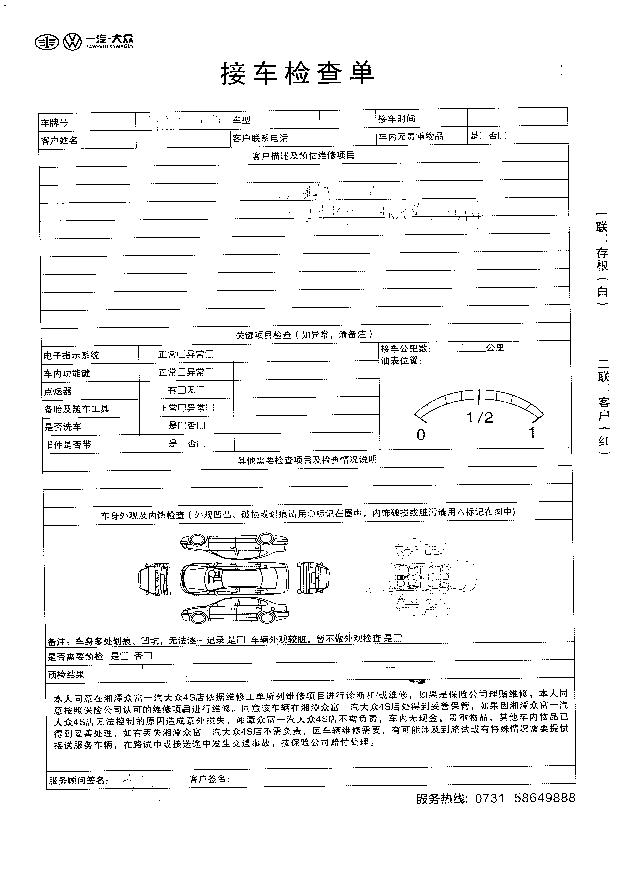 一汽-大众
FAW-VOLKSWAGEN
接车检查单
车牌号 车型 接车时间
客户姓名 客户联系电话 车内无贵重物品 是□否□
客户描述及预估维修项目
关键项目检查(如异常,请备注)
电子指示系统 正常□异常□ 接车公里数: 公里
油表位置:
车内功能键 正常□异常□
点烟器 有□无□
备胎及随车工具 正常□异常□
是否洗车 是□否□
旧件是否带 是□否□
0 1/2 1
其他需要检查项目及检查情况说明
车身外观及内饰检查(外观凹凸、破损或划痕请用○标记在图中,内饰破损或脏污请用△标记在图中)
备注:车身多处划痕、凹坑,无法逐一记录 是□ 车辆外观较脏,暂不做外观检查 是□
是否需要预检 是□ 否□
预检结果
本人同意在湘潭众富一汽大众4S店依据维修工单所列维修项目进行诊断和/或维修,如果是保险公司理赔维修,本人同
意按照保险公司认可的维修项目进行维修。同意该车辆在湘潭众富一汽大众4S店处得到妥善保管,如果因湘潭众富一汽
大众4S店无法控制的原因造成意外损失,湘潭众富一汽大众4S店不负责,车内无现金、贵重物品,其他车内物品已
得到妥善处理,如有丢失湘潭众富一汽大众4S店不需负责。因车辆维修需要,有可能涉及到路试或有特殊情况需要提供
接送服务车辆,在路试中或接送途中发生交通事故,按保险公司赔付处理。
服务顾问签名: 客户签名:
服务热线: 0731 58649888
一联:存根(白)
二联:客户(红)